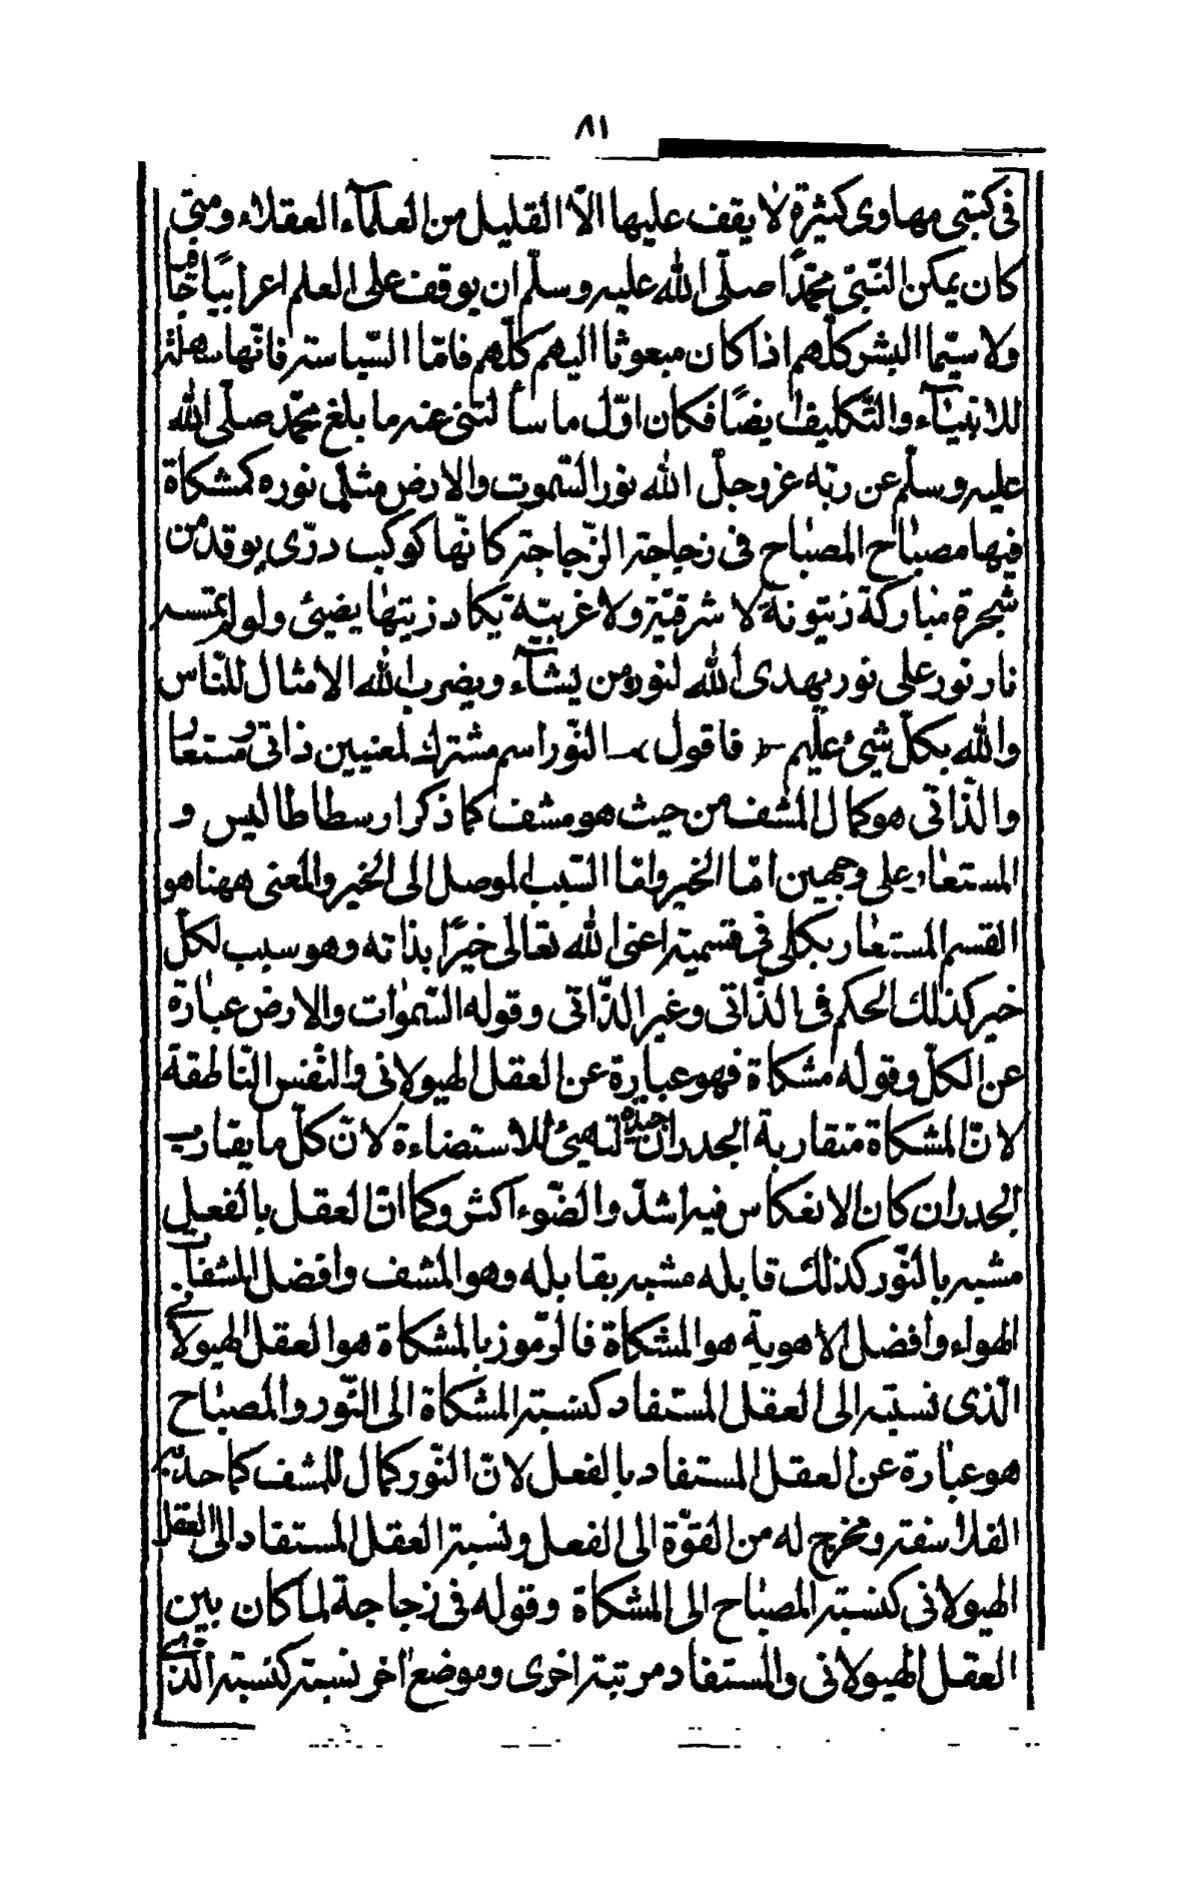 ٨١
فى كتبى مهاوى كثيرة لا يقف عليها الّا القليل من العلمآء العقلاء ومتى
كان يمكن النّبىّ محمّدًا صلّى الله عليه وسلّم ان يوقف على العلم اعرابيًا جافيا
ولا سيّما البشر كلّهم اذا كان مبعوثا اليهم كلّهم فامّا السّياسة فانّها سهلة
للانبيآء والتّكليف ايضًا فكان اوّل ما سألتنى عنه ما بلغ محمّد صلّى الله
عليه وسلّم عن ربّه عزوجلّ الله نور السّموت والارض مثل نوره كمشكاة
فيها مصباح المصباح فى زجاجة الزّجاجة كانّها كوكب درّى يوقد من
شجرة مباركة زيتونة لا شرقيّة ولا غربيّة يكاد زيتها يضيئ ولو لم تمسسه
نار نور على نور يهدى الله لنوره من يشآء ويضرب الله الامثال للنّاس
والله بكلّ شيئ عليم فاقول النّور اسم مشترك لمعنيين ذاتى ومستعار
والذّاتى هو كمال المشف من حيث هو مشف كما ذكر ارسطاطاليس و
المستعار على وجهين امّا الخير وامّا السّبب الموصل الى الخير والمعنى ههنا هو
القسم المستعار بكلى فى قسميه اعنى الله تعالى خيرًا بذاته وهو سبب لكلّ
خير كذلك الحكم فى الذّاتى وغير الذّاتى وقوله السّموات والارض عبارة
عن الكلّ وقوله مشكاة فهو عبارة عن العقل الهيولانى والنّفس النّاطقة
لانّ المشكاة متقاربة الجدران جيدة التهيئ للاستضاءة لانّ كلّ ما يقارب
الجدران كان الانعكاس فيه اشدّ والضّوء اكثر وكما انّ العقل بالفعل
مشبه بالنّور كذلك قابله مشبه بقابله وهو المشف وافضل المشفات
الهواء وافضل الاهوية هو المشكاة فالمرموز بالمشكاة هو العقل الهيولانى
الّذى نسبته الى العقل المستفاد كنسبة المشكاة الى النّور والمصباح
هو عبارة عن العقل المستفاد بالفعل لانّ النّور كمال للمشف كما حدّ به
الفلاسفة ومخرج له من القوّة الى الفعل ونسبة العقل المستفاد الى العقل
الهيولانى كنسبة المصباح الى المشكاة وقوله فى زجاجة لما كان بين
العقل الهيولانى والمستفاد مرتبة اخرى وموضع اخر نسبته كنسبة الّذى